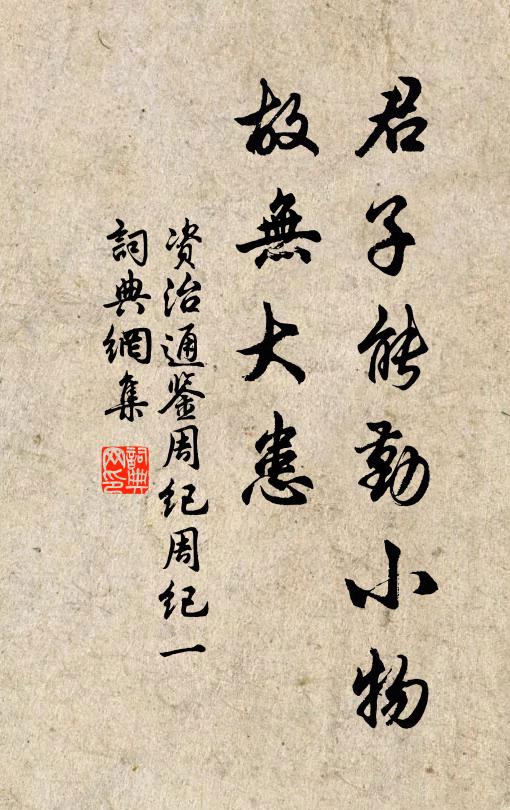 君子能勤小物
故無大患
资治通鉴周纪周纪一
詞典網集
詞典
网印